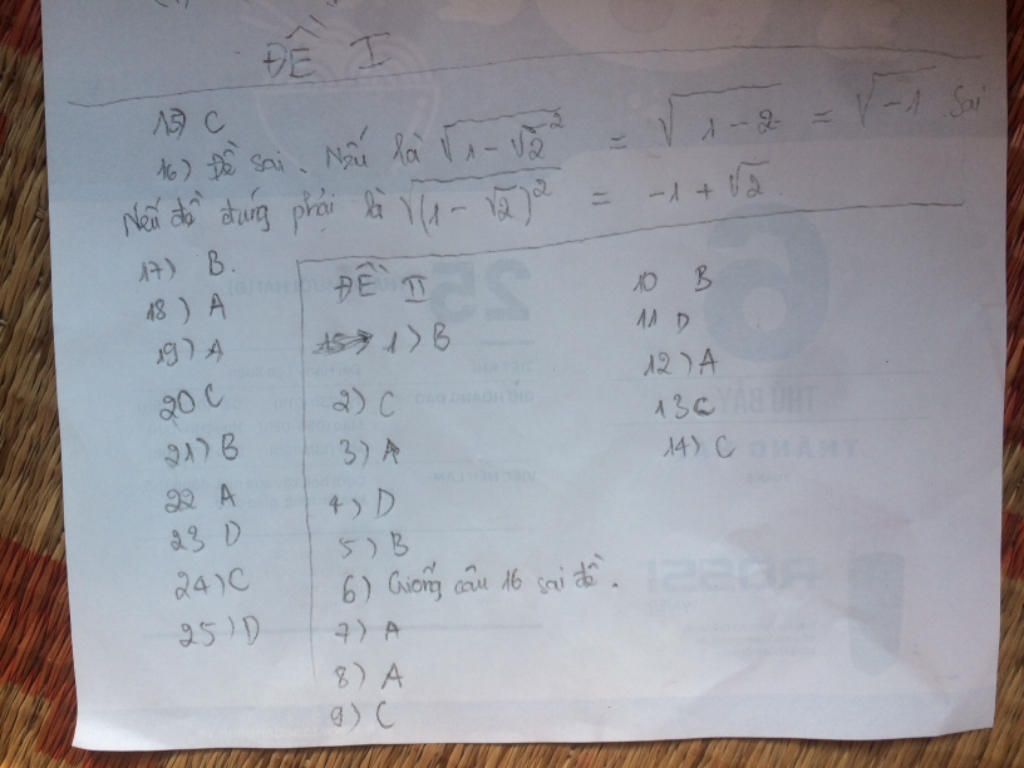 ĐỀ I
15) C
16) Đề sai. Nếu là √1-√2² = √1-2 = √-1 sai
Nếu đề đúng phải là √(1-√2)² = -1+√2
17) B.
18) A
19) A
20 C
21) B
22 A
23 D
24) C
25) D
ĐỀ II
1) B
2) C
3) A
4) D
5) B
6) Giống câu 16 sai đề.
7) A
8) A
9) C
10 B
11 D
12) A
13 C
14) C